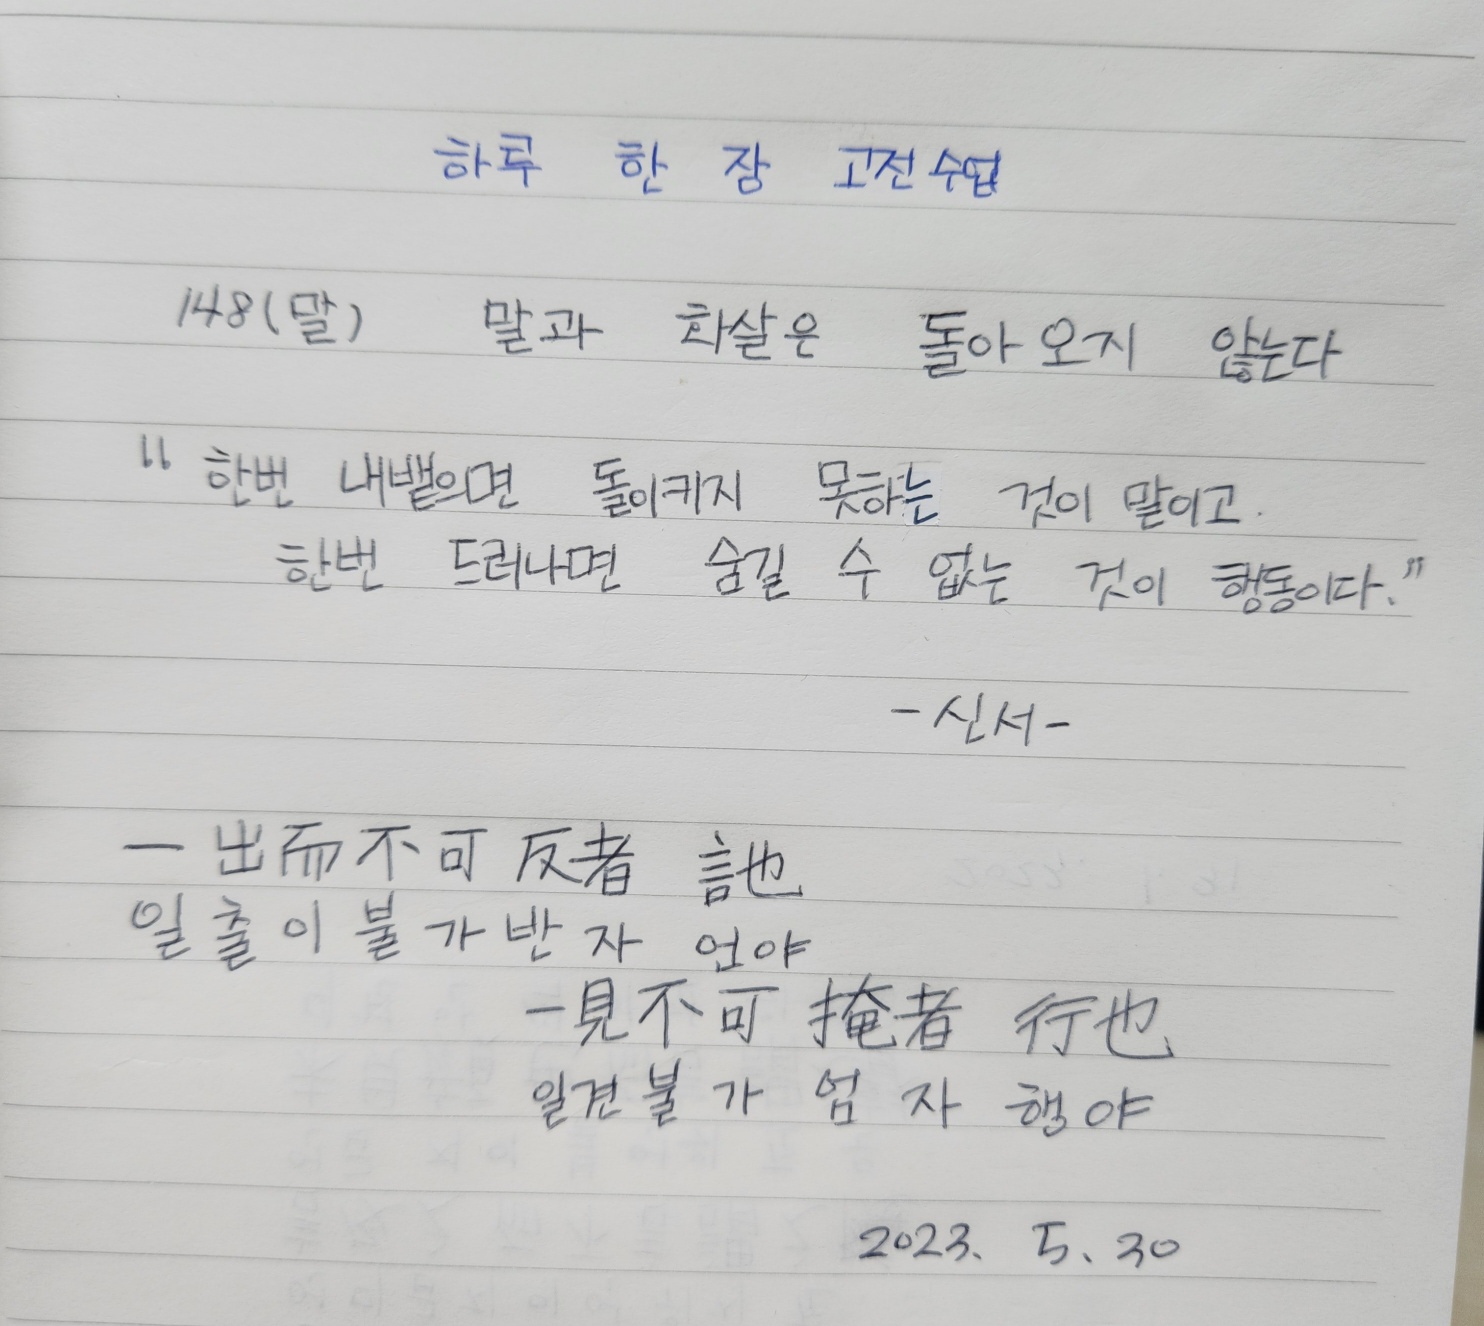 하루 한 장 고전수업
148(말) 말과 화살은 돌아오지 않는다
"한번 내뱉으면 돌이키지 못하는 것이 말이고.
한번 드러나면 숨길 수 없는 것이 행동이다."
-신서-
一出而不可反者 言也
일출이불가반자 언야
一見不可掩者 行也
일견불가엄자 행야
2023. 5. 30